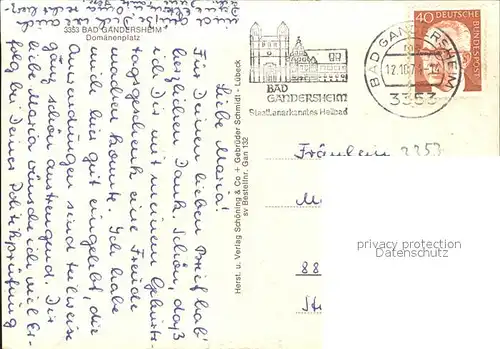 3353 BAD GANDERSHEIM
Domänenplatz
Liebe Maria!
Für Deinen lieben Brief hab'
herzlichen Dank. Schön, daß
ich Dir mit meinem Geburts-
tagsgeschenk eine Freude
machen konnte. Ich habe
mich hier gut eingelebt, die
Anwendungen sind teilweise
ganz schön anstrengend. Dir
liebe Maria wünsche ich viel Er-
folg bei Deiner Politikprüfung
und
Herst. u. Verlag Schöning & Co + Gebrüder Schmidt - Lübeck
sv Bestellnr. Gan 132
BAD
GANDERSHEIM
Staatl. anerkanntes Heilbad
BAD GANDERSHEIM
3353
40 DEUTSCHE
BUNDESPOST
Fräulein 3353
M
88
privacy protection
Datenschutz